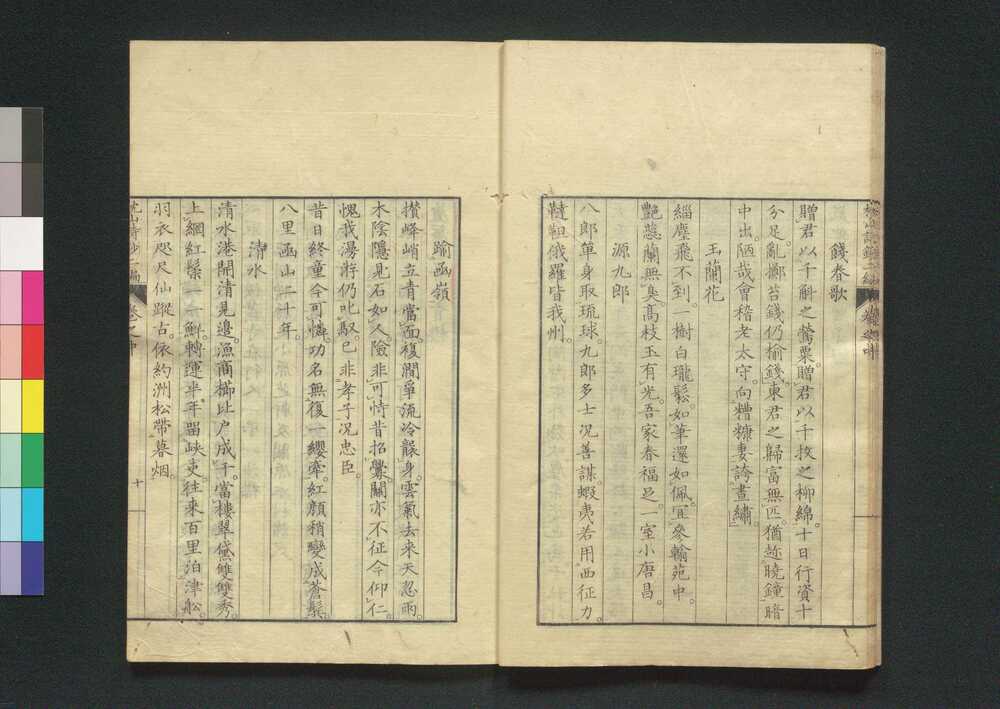 餞春歌
贈君以千斛之鶯粟。贈君以千枚之柳綿。十日行資十
分足。亂擲苔錢仍榆錢。東君之歸富無匹。猶趂曉鐘暗
中出。陋哉會稽老太守。向糟糠妻誇晝繡。
玉蘭花
緇塵飛不到。一樹白瓏鬆。如筆還如佩。宜參翰苑中。
艷蕊蘭無臭。高枝玉有光。吾家春福足。一室小唐昌。
源九郎
八郎單身取琉球。九郎多士況善謀。蝦夷若用西征力。
韃靼俄羅皆我州。
踰函嶺
攅峰峭立青當面。複澗爭流冷襯身。雲氣去來天忽雨。
木陰隱見石如人。險非可恃昔招釁。關亦不征今仰仁。
愧我湯蔣仍叱馭。已非孝子況忠臣。
昔日終童今可憐。功名無復一纓牽。紅顏稍變成蒼鬂。
八里函山二十年。
清水
清水港開清見邊。漁商櫛比户成千。當樓翠黛雙雙秀。
上網紅鬃一一鮮。轉運半年留峽吏。往來百里泊津船。
羽衣咫尺仙蹤古。依約洲松帶暮烟。
山詩鈔二編
卷之中
十